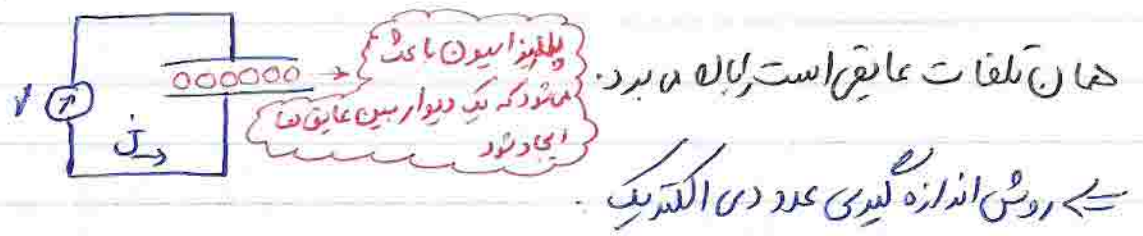 همان تلفات عایقی است را بالا می برد.
پلاریزاسیون باعث
می شود که یک دیوار بین عایق ها
ایجاد شود
V
J
=> روش اندازه گیری عدد دی الکتریک.